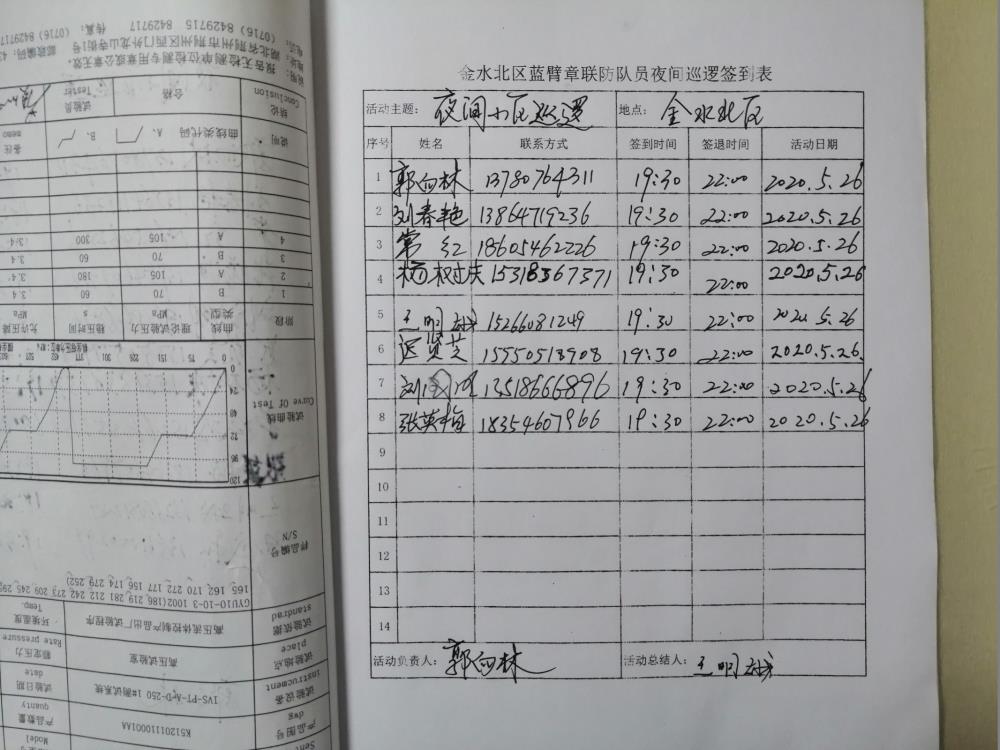 金水北区蓝臂章联防队员夜间巡逻签到表
活动主题： 夜间小区巡逻 地点： 金水北区
序号 姓名 联系方式 签到时间 签退时间 活动日期
1 郭向林 13780764311 19:30 22:00 2020.5.26
2 刘春艳 13864719236 19:30 22:00 2020.5.26
3 常红 18605462226 19:30 22:00 2020.5.26
4 杨 15318367371 19:30 22:00 2020.5.26
5 王明 15266081249 19:30 22:00 2020.5.26
6 贤芝 15550513908 19:30 22:00 2020.5.26
7 刘 13518666896 19:30 22:00 2020.5.26
8 张英梅 18354607966 19:30 22:00 2020.5.26
9
10
11
12
13
14
活动负责人： 郭向林 活动总结人： 王明
Model
产品数量 quanty
试验日期 date
额定压力 Rate pressure
环境温度 Temp.
产品图号 dwg K51201110001AA
试验设备 instrucment IVS-PT-ArD-250 1#测试系统
试验地点 place 高压试验室
试验依据 standrad 高压流体控制产品出厂试验程序
GYU10-10-3 1002(186 219 281 212 242 273 209 245 295
165 162 170 272 177 156 174 279 252)
样品编号 S/N
试验曲线 Curve Of Test
阶段 曲线类型 理论试验压力 MPa 稳压时间 s 允许压降 MPa
1 B 70 60 3.4
2 A 105 180 3.4
3 B 70 60 3.4
4 A 105 300 3.4
说明 曲线类代码 A、 B、 备注 memo
结论 Conclusion 合格 试验员 Tester
说明：报告无检测单位检测专用章或公章无效。
地址：湖北省荆州市荆州区西门外龙山寺街1号
电话：(0716) 8429715 8429717 传真：(0716) 8429717